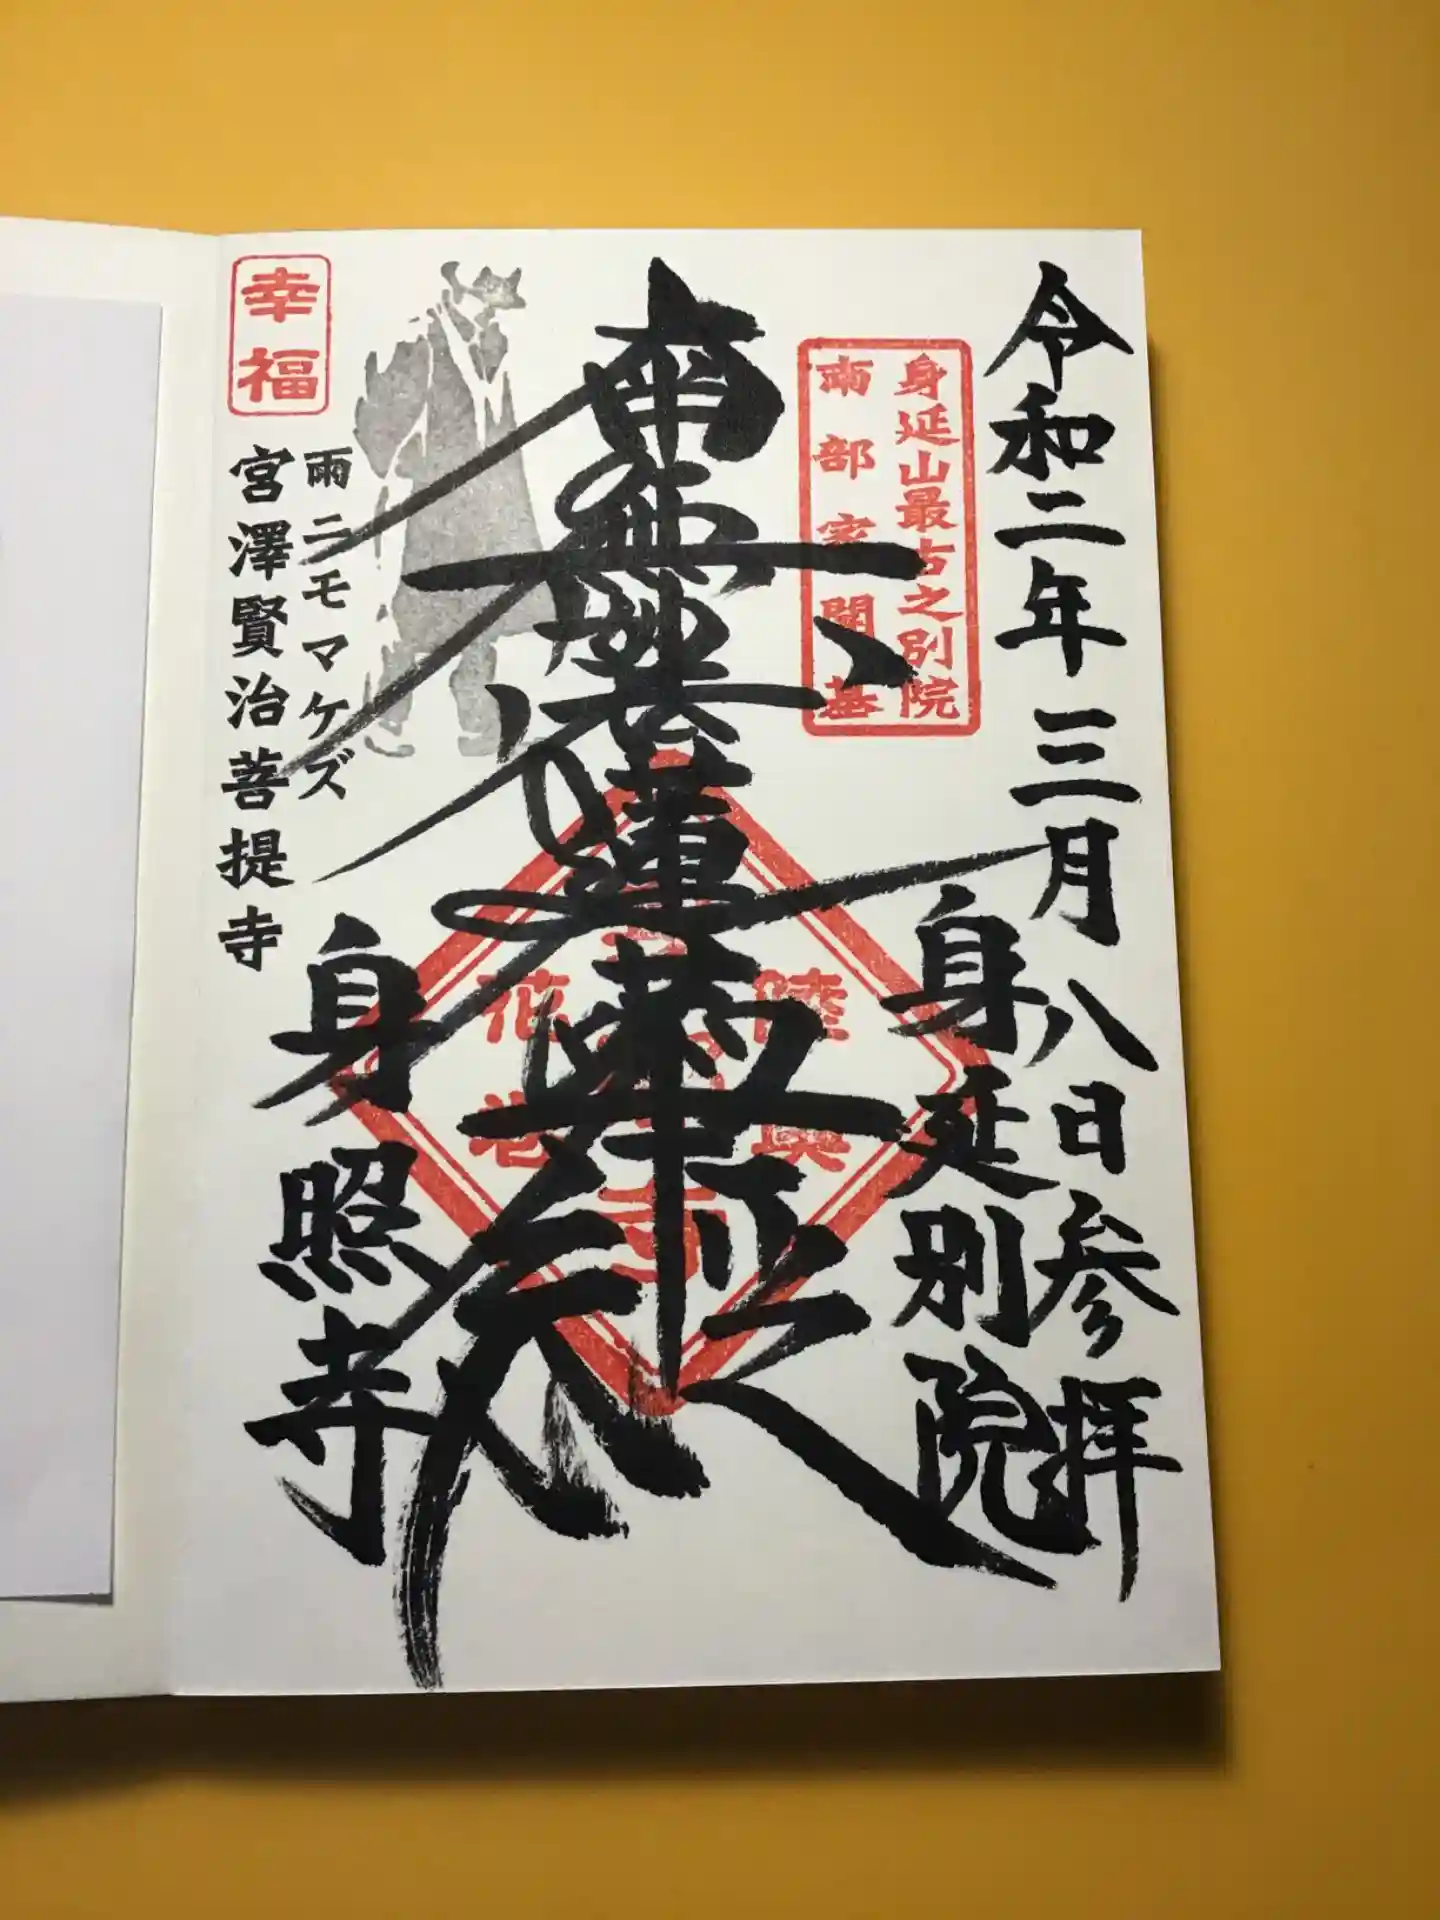 令和二年三月八日参拝
身延別院
身延山最古之別院
南部家開基
南無妙法蓮華経
陸奥
花巻
身照寺
雨ニモマケズ
宮澤賢治菩提寺
幸福